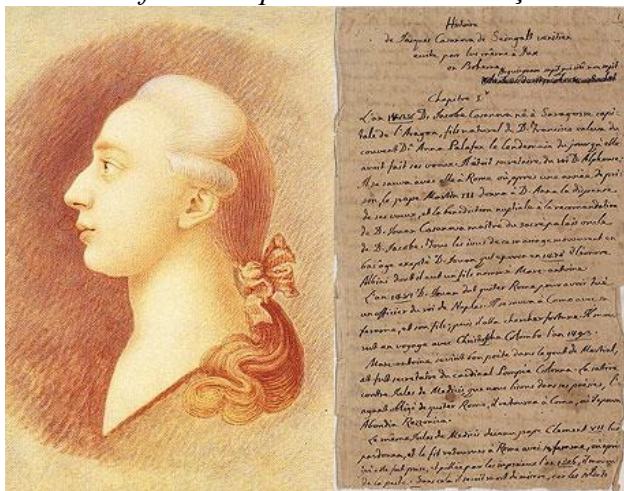 Histoire
de Jacques Casanova de Seingalt vénitien
ecrite par lui même à Dux
en Boheme
Nequicquam sapit qui sibi non sapit
Chapitre I.r
L'an 1428 D. Jacobe Casanova né à Saragosse capi-
tale de l'Aragon, fils naturel de D. Francisco enleva du
couvent D. Anna Palafox le lendemain du jour qu'elle
avoit fait ses vœux. Il étoit secretaire du roi D. Alphonse.
Il se sauva avec elle à Rome où après une année de pri-
son, le pape Martin III donna à D. Anna la dispense
de ses vœux, et la benediction nuptiale à la recomandation
de D. Jouan Casanova maître du sacré palais oncle
de D. Jacobe. Tous les issus de ce mariage moururent en
bas âge excepté D. Jouan qui épousa en 1475 Eleonore
Albini dont il eut un fils nommé Marc-antoine.
L'an 1481 D. Jouan dut quiter Rome pour avoir tué
un officier du roi de Naples. Il se sauva à Como avec sa
femme, et son fils; puis il alla chercher fortune. Il mou-
rut en voyage avec Christophe Colombo l'an 1493.
Marc-antoine devint bon poète dans le gout de Martial,
et fut secretaire du cardinal Pompée Colonna. La satire
contre Jules de Medicis que nous lisons dans ses poésies, l'
ayant obligé de quiter Rome, il retourna à Como, où il épousa
Abondia Rezzonica.
Le même Jules de Medicis devenu pape Clement VII lui
pardonna, et le fit retourner à Rome avec sa femme, où après